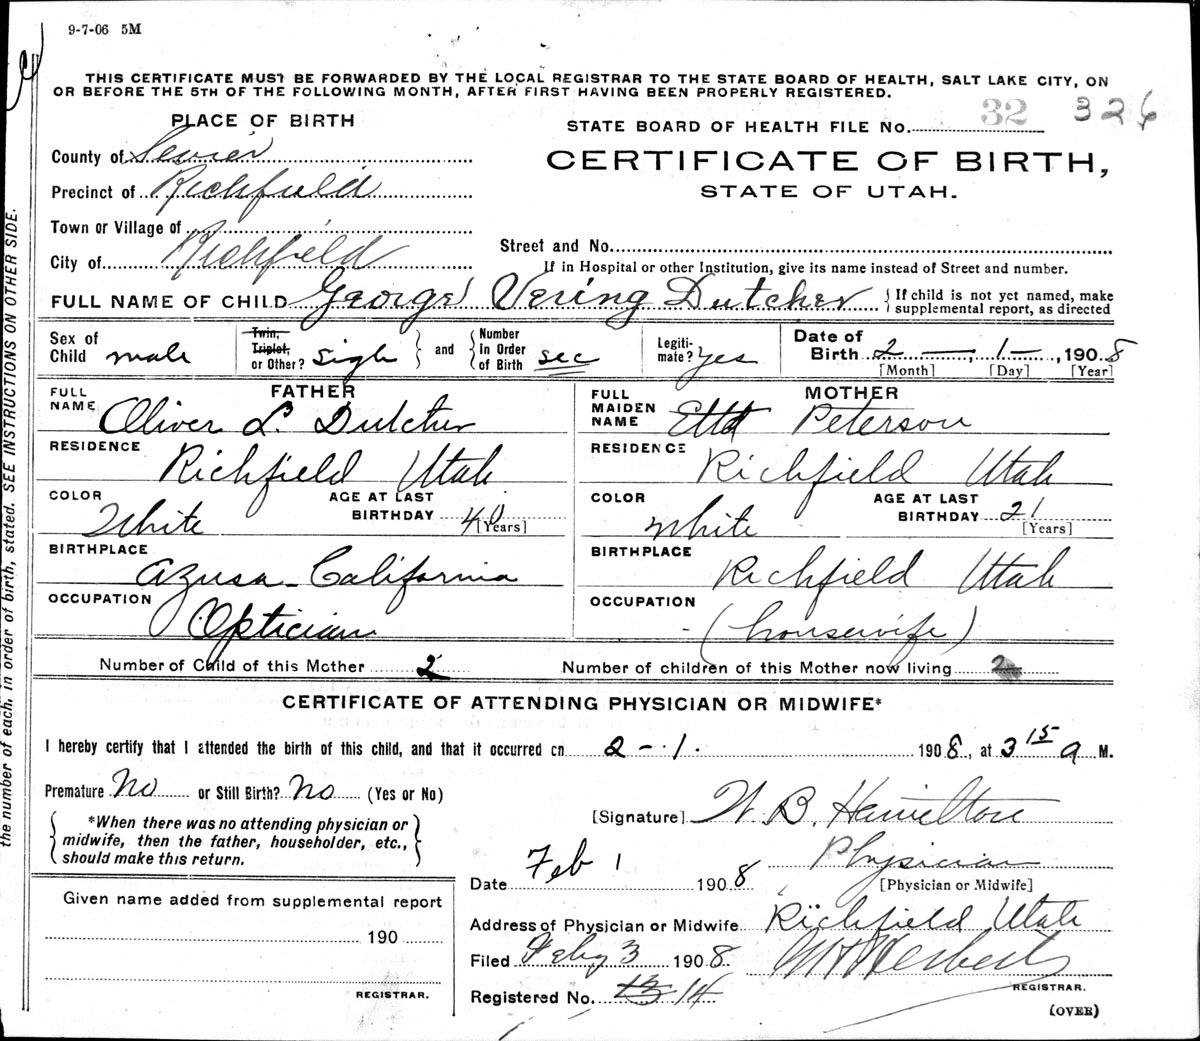 9-7-06 5M
THIS CERTIFICATE MUST BE FORWARDED BY THE LOCAL REGISTRAR TO THE STATE BOARD OF HEALTH, SALT LAKE CITY, ON
OR BEFORE THE 5TH OF THE FOLLOWING MONTH, AFTER FIRST HAVING BEEN PROPERLY REGISTERED.
PLACE OF BIRTH
STATE BOARD OF HEALTH FILE No. 32 326
County of Sevier
CERTIFICATE OF BIRTH,
Precinct of Richfield
STATE OF UTAH.
Town or Village of
City of Richfield
Street and No.
If in Hospital or other Institution, give its name instead of Street and number.
FULL NAME OF CHILD George Vering Dutcher {If child is not yet named, make
supplemental report, as directed
Sex of Child male
Twin, Triplet, or Other? Sigle } and { Number In Order of Birth sec
Legitimate? yes
Date of Birth 2 - , 1 - , 1908
[Month] [Day] [Year]
FATHER
FULL NAME Oliver L. Dutcher
RESIDENCE Richfield Utah
COLOR White
AGE AT LAST BIRTHDAY 40 [Years]
BIRTHPLACE Azusa California
OCCUPATION Optician
MOTHER
FULL MAIDEN NAME Etta Peterson
RESIDENCE Richfield Utah
COLOR White
AGE AT LAST BIRTHDAY 21 [Years]
BIRTHPLACE Richfield Utah
OCCUPATION (housewife)
Number of Child of this Mother 2 Number of children of this Mother now living 2
CERTIFICATE OF ATTENDING PHYSICIAN OR MIDWIFE*
I hereby certify that I attended the birth of this child, and that it occurred on 2 - 1. 1908, at 3 15 a M.
Premature No or Still Birth? No (Yes or No)
*When there was no attending physician or
midwife, then the father, householder, etc.,
should make this return.
[Signature] W. B. Hamilton
Physician
[Physician or Midwife]
Date Feb 1 1908
Given name added from supplemental report
190
REGISTRAR.
Address of Physician or Midwife Richfield Utah
Filed Feby 3 1908.
REGISTRAR.
Registered No. 13 14
(OVER)
the number of each, in order of birth, stated. SEE INSTRUCTIONS ON OTHER SIDE.